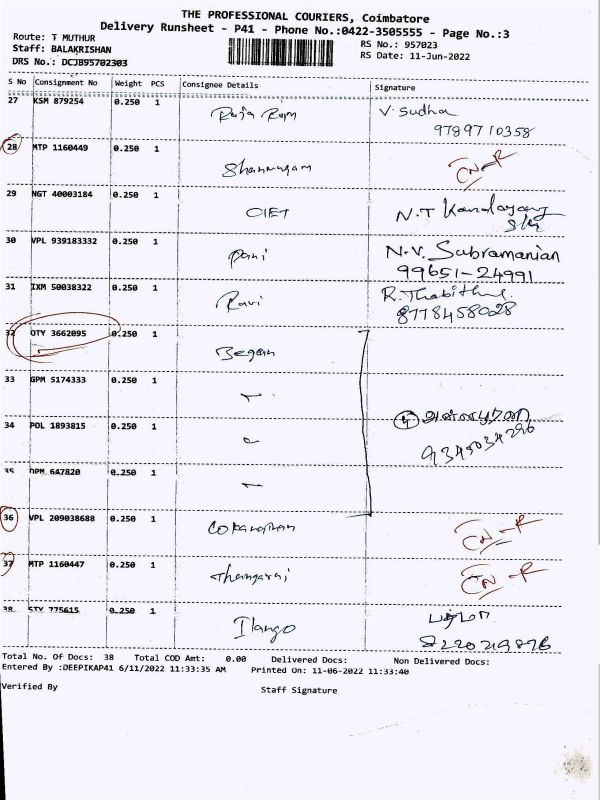 THE PROFESSIONAL COURIERS, Coimbatore
Delivery Runsheet - P41 - Phone No.:0422-3505555 - Page No.:3
Route: T MUTHUR
RS No.: 957023
Staff: BALAKRISHAN
RS Date: 11-Jun-2022
DRS No.: DCJB95702303
S No Consignment No Weight PCS Consignee Details Signature
27 KSM 879254 0.250 1 Raja Ram V. Sudha
9789710358
28 MTP 1160449 0.250 1 Shanmugam CN-R
29 NGT 40003184 0.250 1 OIET N.T
30 VPL 939183332 0.250 1 Pani N.V. Subramanian
99651-24991
31 IXM 50038322 0.250 1 Ravi R.
8778458028
32 OTY 3662095 0.250 1 Began
33 GPM 5174333 0.250 1
34 POL 1893815 0.250 1
9345034296
35 DPM 6A7820 0.250 1
36 VPL 209038688 0.250 1 CN-R
37 MTP 1160447 0.250 1 Thangaraj CN-R
38 STV 775615 0.250 1 Ilango
8220219876
Total No. Of Docs: 38 Total COD Amt: 0.00 Delivered Docs: Non Delivered Docs:
Entered By :DEEPIKAP41 6/11/2022 11:33:35 AM Printed On: 11-06-2022 11:33:40
Verified By Staff Signature